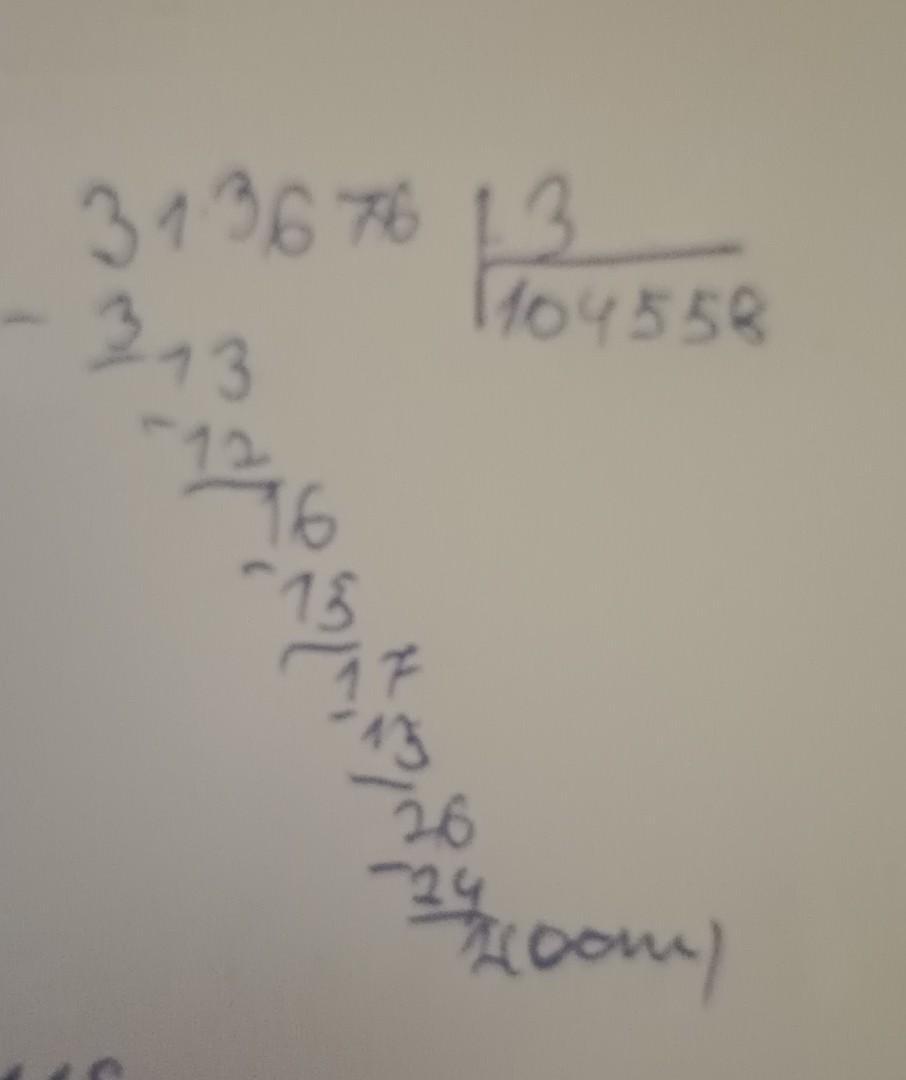 313676 3
- 3 104558
13
- 12
16
- 15
17
- 15
26
- 24
2(ост)